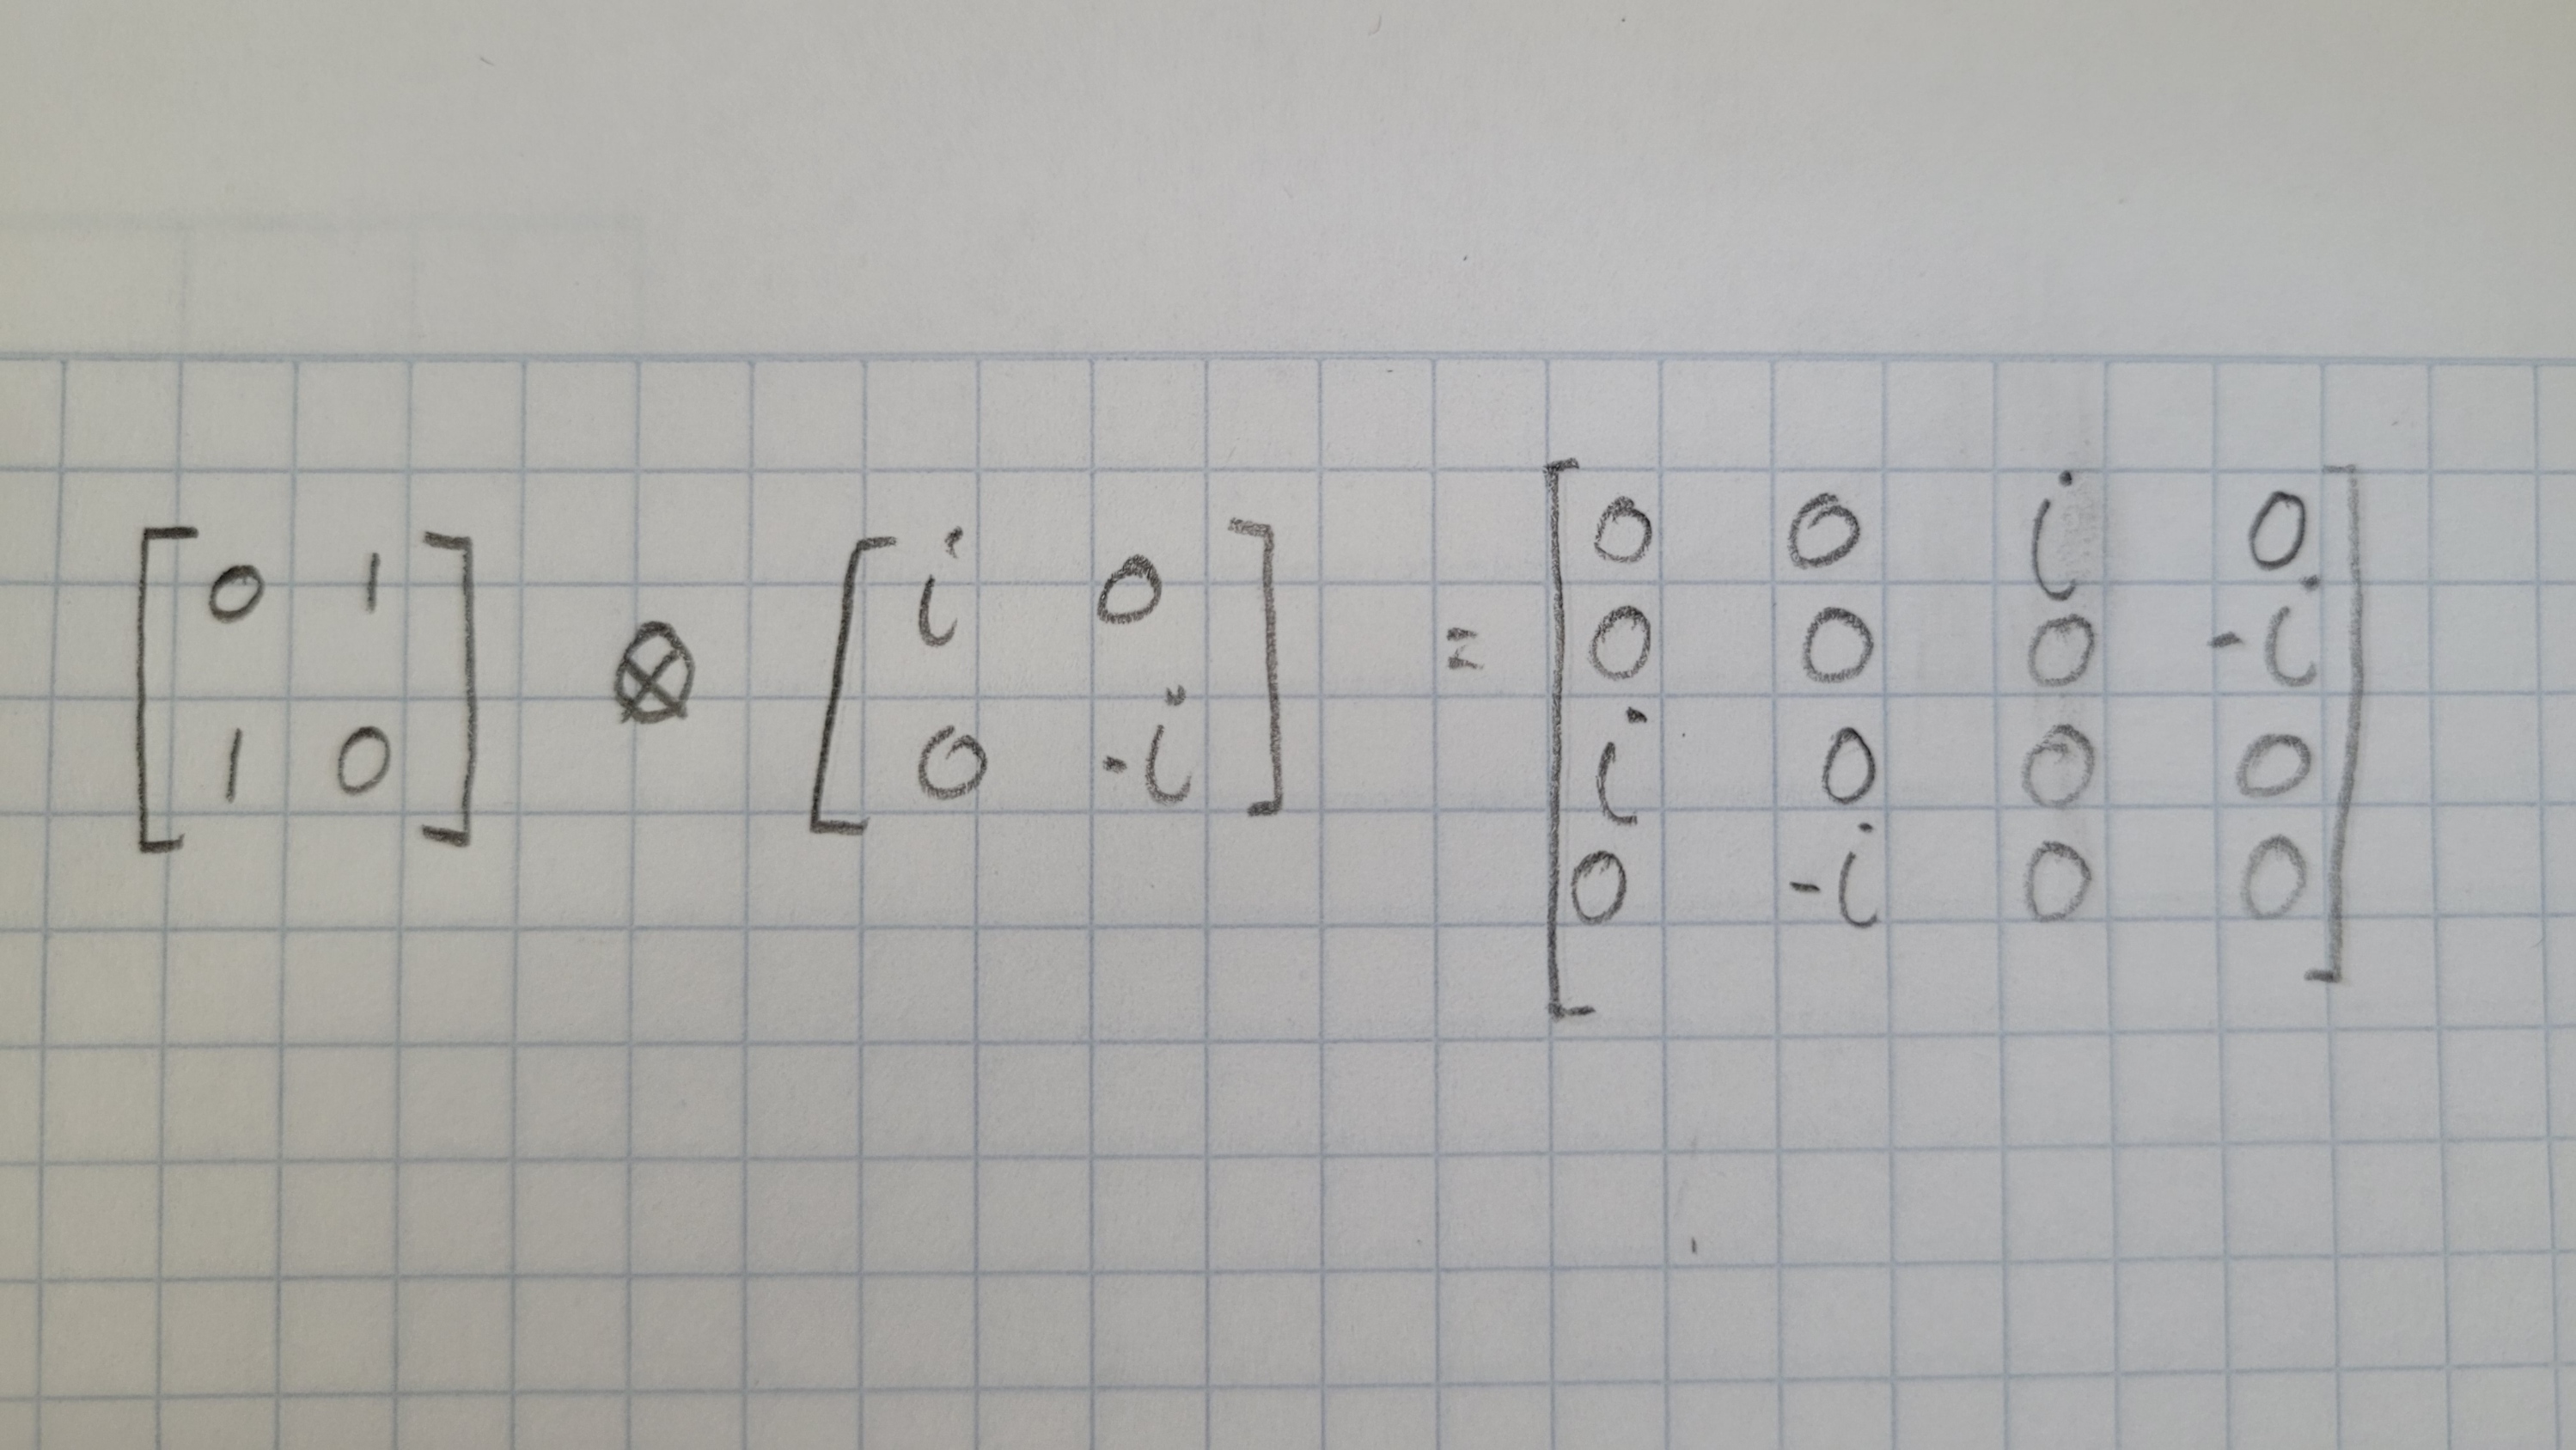 [0 1
1 0] ⊗ [i 0
0 -i] = [0 0 i 0
0 0 0 -i
i 0 0 0
0 -i 0 0]